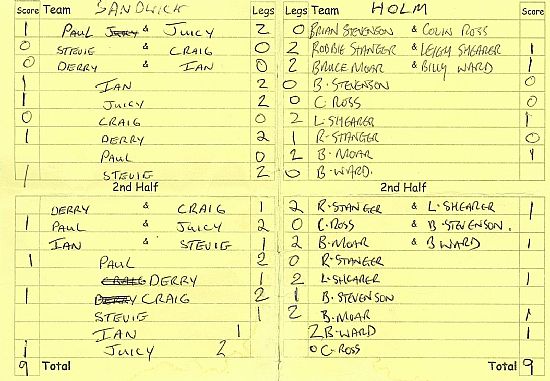 Score Team SANDWICK Legs Team HOLM Score
1 PAUL JERRY & JUICY 2 0 BRIAN STEVENSON & COLIN ROSS
0 STEVIE & CRAIG 0 2 ROBBIE STANGER & LEIGH SHEARER 1
0 DERRY & IAN 0 2 BRUCE MOAR & BILLY WARD 1
1 IAN 2 0 B. STEVENSON 0
1 JUICY 2 0 C. ROSS 0
0 CRAIG 0 2 L. SHEARER 1
1 DERRY 2 1 R. STANGER 0
PAUL 0 2 B. MOAR 1
1 STEVIE 2 0 B. WARD.
2nd Half 2nd Half
DERRY & CRAIG 1 2 R. STANGER & L. SHEARER 1
1 PAUL & JUICY 2 0 C. ROSS & B. STEVENSON.
IAN & STEVIE 1 2 B. MOAR & B WARD 1
1 PAUL 2 0 R. STANGER
CRAIG DERRY 1 2 L. SHEARER 1
1 DERRY CRAIG 2 1 B. STEVENSON
STEVIE 1 2 B. MOAR 1
IAN 1 2 B. WARD 1
1 JUICY 2 0 C. ROSS
9 Total Total 9